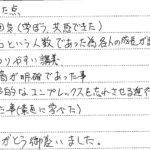 た点
回答(学ぼう、共感できた)
という人数であった為各人の発言が
りやすい講義
高が明確であった事
的なコンプレックスを忘れさせる進行
た事(素直に学べた)
がとう御座いました。